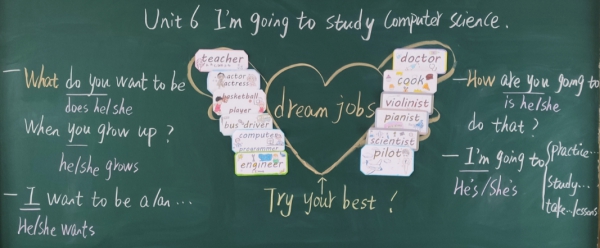 Unit 6 I'm going to study computer science.
What do you want to be
does he/she
When you grow up?
he/she grows
I want to be a/an...
He/she wants
teacher
actor
actress
basketball
player
bus driver
computer
programmer
engineer
dream jobs
Try your best!
doctor
cook
violinist
pianist
scientist
pilot
How are you going to
is he/she
do that?
I'm going to
He's/She's
practice...
study...
take...lessons